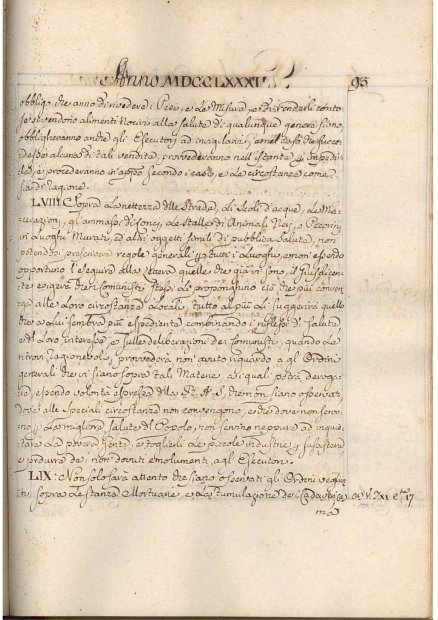 Anno MDCCLXXXI 95
obbligo che anno di rivedere i Pesi, e Le Misure, e di renderli conto
se si vendono alimenti Nocivi alla Salute di qualunque genere siano,
obbligheranno anche gli Esecutori ad invigilare, e nel caso che succe-
desse alcuna di tali vendite, provvederanno nell'istante
e procederanno in appo secondo i casi, e Le circostanze come
sia di Ragione.
LVIII: Sopra La nettezza delle Strade, Li Scoli d'acque, Le Ma-
cerazioni, gl'ammassi di Conci, Le Stalle di Animali Neri, o Pecorini
in Luoghi Murati, ed altri oggetti simili di pubblica Salute, non
potendosi prescrivere regole generali p tutti i Luoghi, e non essendo
opportuno l'eseguire alla Lettera quelle che già vi sono, il Giusdicen-
te esigerà che i Comunisti stessi Li proponghino ciò che più conven-
ga alle Loro circostanze Locali, tutto al più Li suggerirà quello
che a Lui sembra più espediente combinando i riflessi di Salute
ed il Loro interesse, e sulle deliberazioni dei Comunisti, quando Le
ritrovi ragionevoli, provvederà non avuto riguardo a gli Ordini
generali che vi siano sopra tali Materie, ai quali potrà deroga-
re, essendo volontà espressa della R. A. S. che non siano osservati,
dove alle speciali circostanze non convengono, e che dove non servo-
no p La migliore Salute del Popolo, non servino neppure ad inquie-
tare La povera Gente, e toglierli Le piccole industrie p sussistere,
e produrre dei non dovuti emolumenti agl'Esecutori.
LIX: Non solo sarà attento che siano osservati gli Ordini veglian-
ti sopra Le Stanze Mortuarie, e La Tumulazione dei Cadaveri
ma